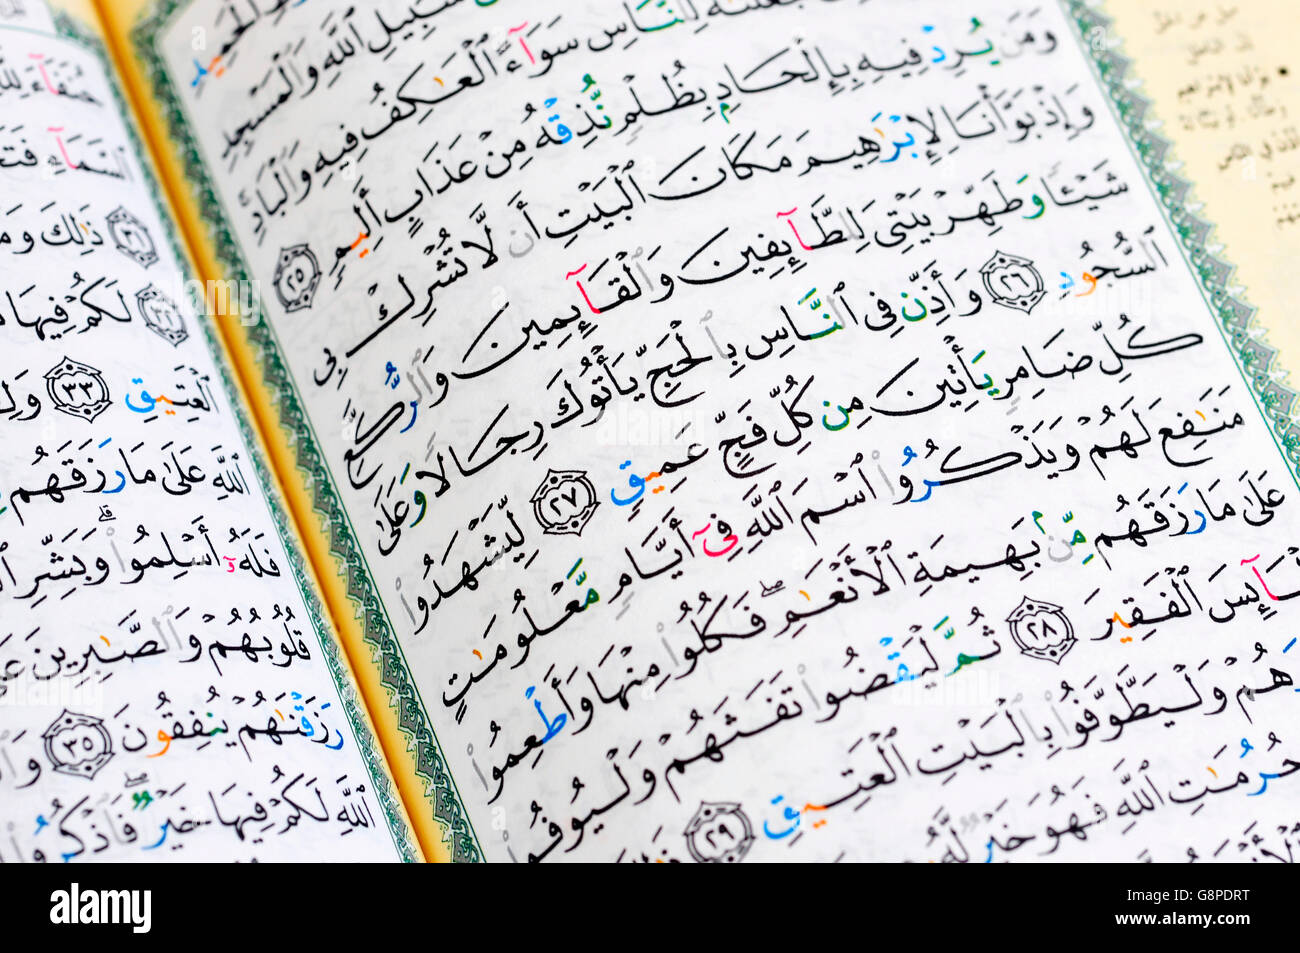 سَبِيلِ ٱللَّهِ وَٱلْمَسْجِدِ
لِلنَّاسِ سَوَآءً ٱلْعَـٰكِفُ فِيهِ وَٱلْبَادِ
وَمَن يُرِدْ فِيهِ بِإِلْحَادٍۭ بِظُلْمٍ نُّذِقْهُ مِنْ عَذَابٍ أَلِيمٍ ٢٥
وَإِذْ بَوَّأْنَا لِإِبْرَٰهِيمَ مَكَانَ ٱلْبَيْتِ أَن لَّا تُشْرِكْ بِى
شَيْـًٔا وَطَهِّرْ بَيْتِىَ لِلطَّآئِفِينَ وَٱلْقَآئِمِينَ وَٱلرُّكَّعِ
ٱلسُّجُودِ ٢٦ وَأَذِّن فِى ٱلنَّاسِ بِٱلْحَجِّ يَأْتُوكَ رِجَالًا وَعَلَىٰ
كُلِّ ضَامِرٍ يَأْتِينَ مِن كُلِّ فَجٍّ عَمِيقٍ ٢٧ لِّيَشْهَدُوا۟
مَنَـٰفِعَ لَهُمْ وَيَذْكُرُوا۟ ٱسْمَ ٱللَّهِ فِىٓ أَيَّامٍ مَّعْلُومَـٰتٍ
عَلَىٰ مَا رَزَقَهُم مِّنۢ بَهِيمَةِ ٱلْأَنْعَـٰمِ ۖ فَكُلُوا۟ مِنْهَا وَأَطْعِمُوا۟
ٱلْفَقِيرَ ٢٨ ثُمَّ لْيَقْضُوا۟ تَفَثَهُمْ وَلْيُوفُوا۟
وَلْيَطَّوَّفُوا۟ بِٱلْبَيْتِ ٱلْعَتِيقِ ٢٩
حُرُمَـٰتِ ٱللَّهِ فَهُوَ خَيْرٌ لَّهُۥ
حُنَفَآءَ لِلَّهِ
ٱلسَّمَآءِ
٣١ ذَٰلِكَ وَمَن
٣٢ لَكُمْ فِيهَا
ٱلْعَتِيقِ ٣٣
ٱللَّهِ عَلَىٰ مَا رَزَقَهُم
فَلَهُۥٓ أَسْلِمُوا۟ ۗ وَبَشِّرِ
قُلُوبُهُمْ وَٱلصَّـٰبِرِينَ
رَزَقْنَـٰهُمْ يُنفِقُونَ ٣٥
ٱللَّهِ لَكُمْ فِيهَا خَيْرٌ ۖ فَٱذْكُرُوا۟
alamy
Image ID: G8PDRT
www.alamy.com